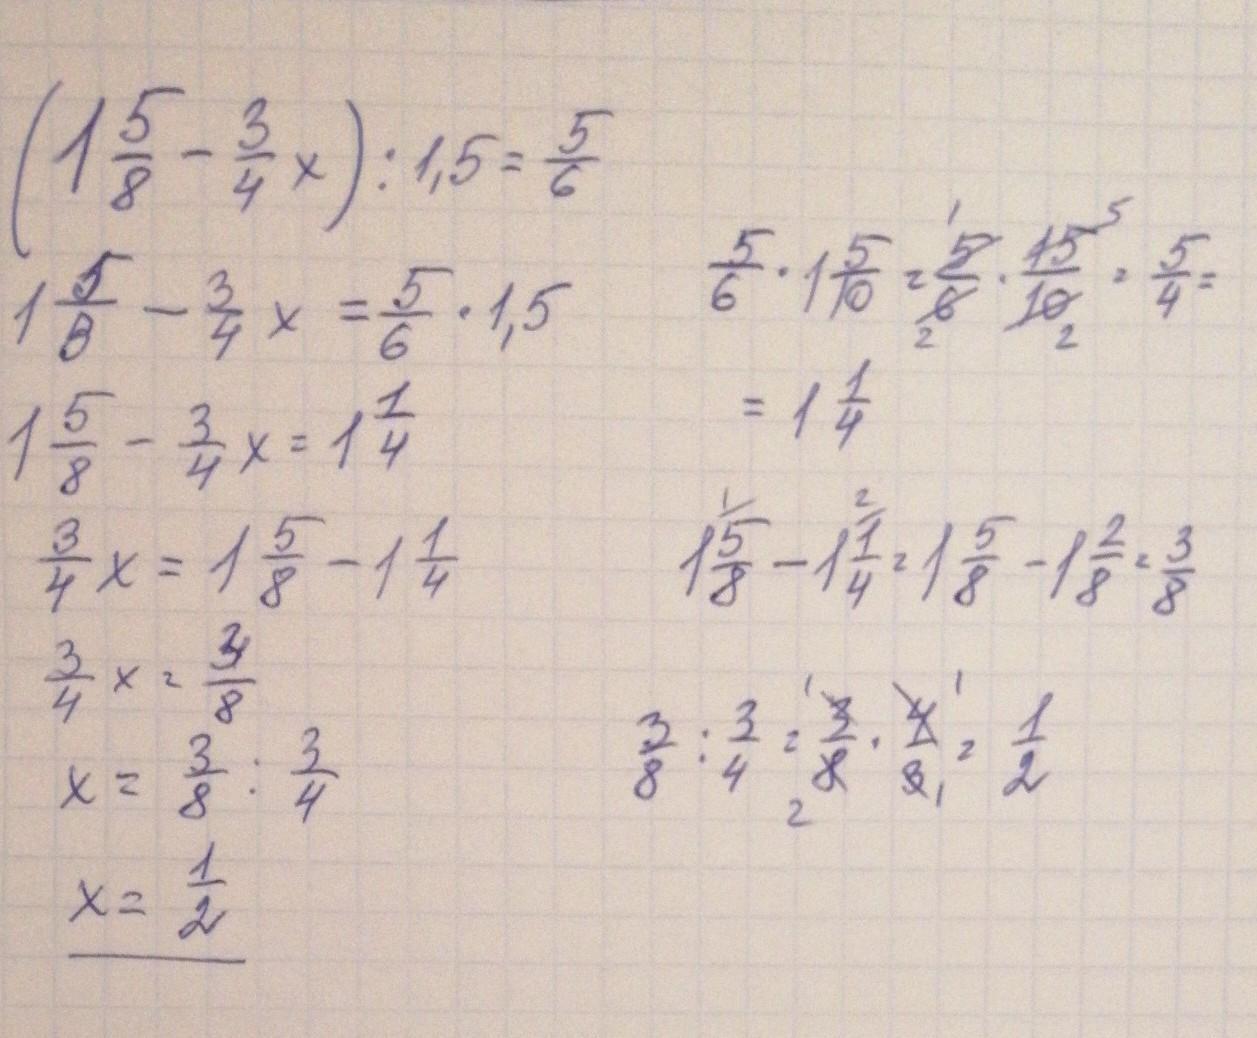 (1 5/8 − 3/4 x) : 1,5 = 5/6
1 5/8 − 3/4 x = 5/6 · 1,5
1 5/8 − 3/4 x = 1 1/4
3/4 x = 1 5/8 − 1 1/4
3/4 x = 3/8
x = 3/8 : 3/4
x = 1/2
5/6 · 1 5/10 = 5/6 · 15/10 = 5/4 =
1 5
2 2
= 1 1/4
1 2
1 5/8 − 1 1/4 = 1 5/8 − 1 2/8 = 3/8
1 1
3/8 : 3/4 = 3/8 · 4/3 = 1/2
2 1